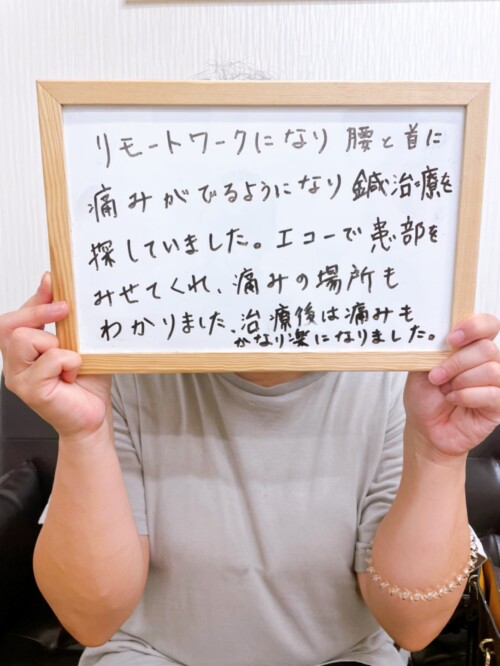 リモートワークになり 腰と首に
痛みがでるようになり 鍼治療を
探していました。エコーで患部を
みせてくれ、痛みの場所も
わかりました、治療後は痛みも
かなり楽になりました。